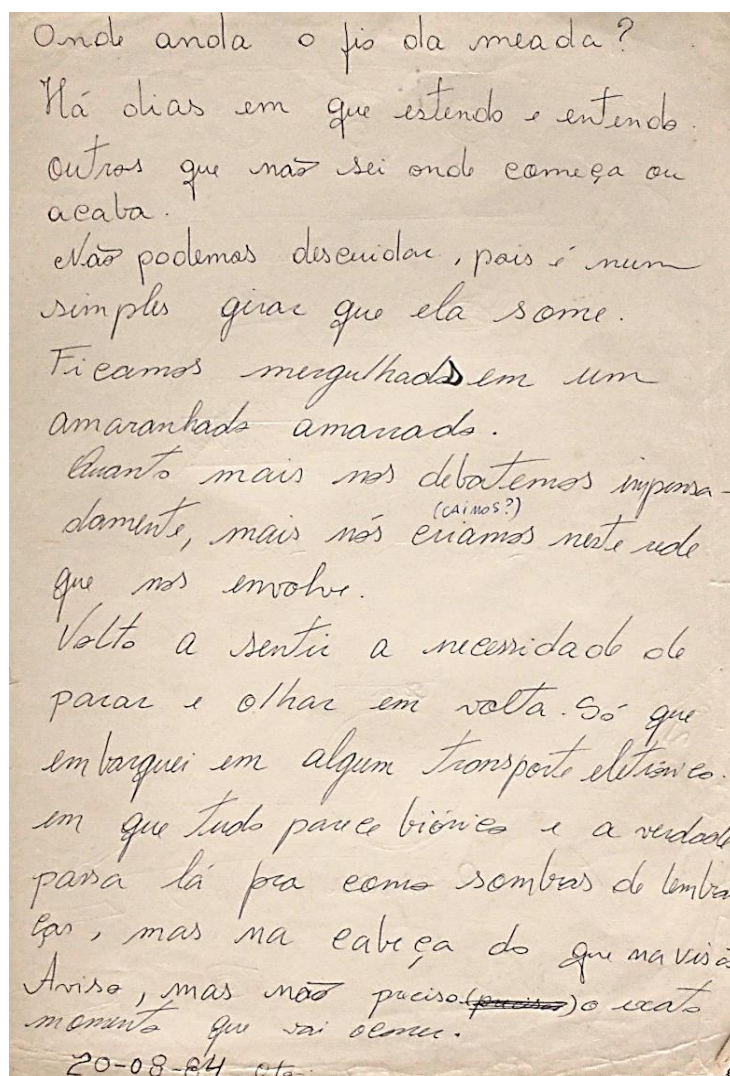 Onde anda o fio da meada?
Há dias em que estendo e entendo.
outros que não sei onde começa ou
acaba.
Não podemos descuidar, pois é num
simples girar que ela some.
Ficamos mergulhados em um
amaranhado amarrado.
Quanto mais nos debatemos impensa-
(CAIMOS?)
damente, mais nós criamos neste rede
que nos envolve.
Volto a sentir a necessidade de
parar e olhar em volta. Só que
embarquei em algum transporte eletrônico.
em que tudo parece biônico e a verdade
passa lá pra como sombras de lembra
ças, mas na cabeça do que na visã
Aviso, mas não preciso (preciso) o exato
momento que vai ocorrer.
20-08-84